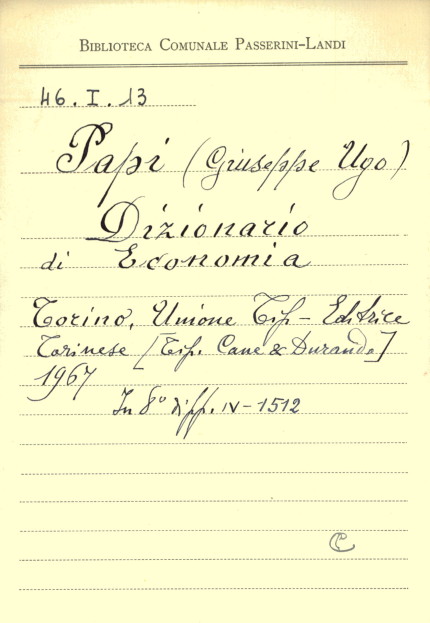 BIBLIOTECA COMUNALE PASSERINI-LANDI
46. I. 13
Papi (Giuseppe Ugo)
Dizionario
di Economia
Torino, Unione Tip-Editrice
Torinese [Tip. Cane & Durando]
1967
In 8° pp. IV-1512
C